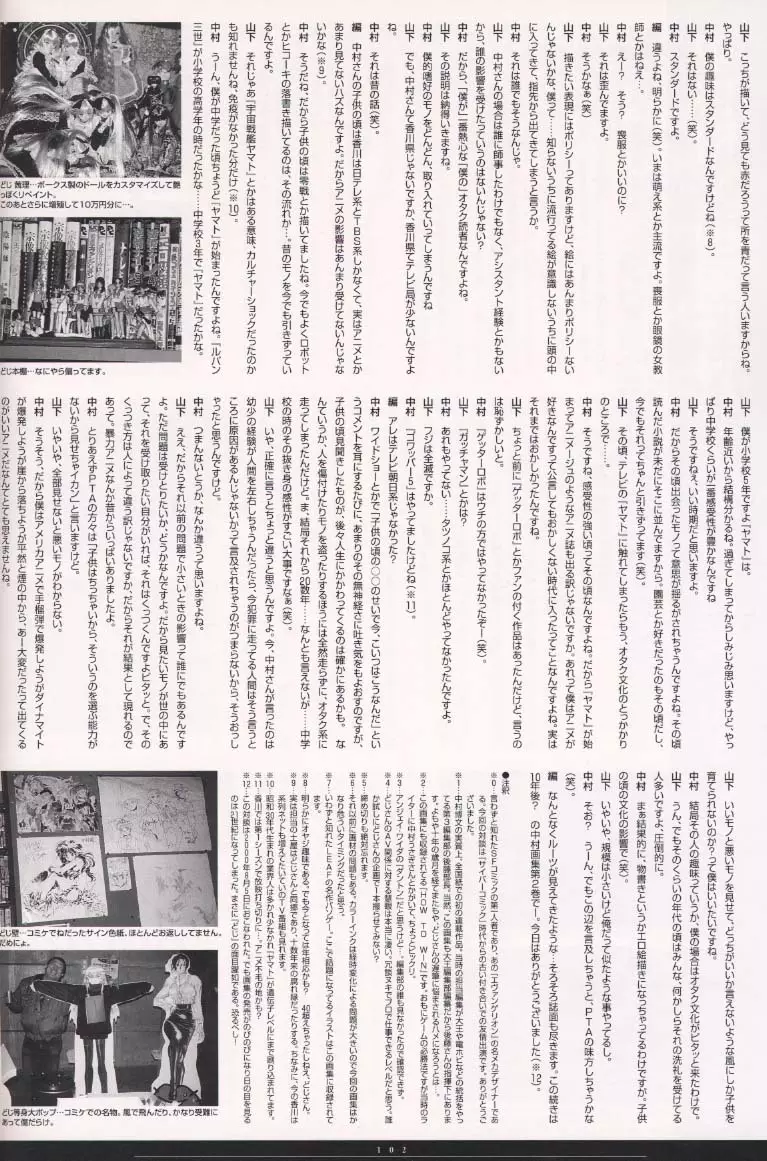 山下　こっちが描いて、どう見ても赤だろうって所を青だって言う人いますからね。
やっぱり。
中村　僕の趣味はスタンダードなんですけどね（※8）。
山下　それはない……（笑）。
中村　スタンダードですよ。
編　違うよね、明らかに（笑）。いまは萌え系とか主流ですよ。喪服とか眼鏡の女教
師とかはねえ…。
中村　え～？　そう？　喪服とかいいのに？
山下　それは歪んでますよ。
中村　そうかなぁ（笑）
山下　描きたい表現にはポリシーってありますけど、絵にはあんまりポリシーない
んじゃないかな、僕って……知らないうちに流行ってる絵が意識しないうちに頭の中
に入ってきて、指先から出てきてしまうと言うか。
中村　それは誰でもそうなんじゃ。
山下　中村さんの場合は誰に師事したわけでもなく、アシスタント経験とかもない
から、誰の影響を受けたっていうのはないんじゃない？
中村　だから、「僕が」一番熱心な「僕の」オタク読者なんですよね。
山下　その説明は納得いきますね。
中村　僕的嗜好のモノをどんどん、取り入れていってしまうんですね
山下　でも、中村さんて香川県じゃないですか、香川県てテレビ局が少ないんですよ
ね。
中村　それは昔の話（笑）。
編　中村さんの子供の頃は香川は日テレ系とTBS系しかなくて、実はアニメとか
あまり見てないハズなんですよ。だからアニメの影響はあんまり受けてないんじゃな
いかな（※9）。
中村　そうだね、だから子供の頃は零戦とか描いてましたね。今でもよくロボット
とかヒコーキの落書き描いてるのは、その流れか…。昔のモノを今でも引きずってい
るんですよ。
山下　それじゃあ「宇宙戦艦ヤマト」とかはある意味、カルチャーショックだったのか
も知れませんね、免疫がなかった分だけ（※10）。
中村　うーん、僕が中学だった頃ちょうど「ヤマト」が始まったんですよね。「ルパン
三世」が小学校の高学年の時だったかな……中学校3年で「ヤマト」だったかな。
どじ 舞理…ボークス製のドールをカスタマイズして艶
っぽくリペイント。
このあとさらに増殖して10万円分に…。
どじ本棚…なにやら偏ってます。
山下　僕が小学校5年ですよ「ヤマト」は。
中村　年齢近いから結構分かるね。過ぎてしまってからしみじみ思いますけど、やっ
ぱり中学校くらいが一番感受性が豊かなんですね
山下　そうですねぇ、いい時期だと思いますよ。
中村　だからその頃出会ったモノって意思が揺るがされちゃうんですよね。その頃
読んだ小説が未だにそこに並んでますから。園芸とか好きだったのもその頃だし、
今でもそれってちゃんと引きずってます（笑）。
山下　その頃、テレビの「ヤマト」に触れてしまったらもう、オタク文化のとっかかり
のところで……。
中村　そうですね、感受性の強い頃ってその頃なんですよね。だから「ヤマト」が始
まってアニメージュのようなアニメ誌も出る訳じゃないですか。あれって僕はアニメが
好きなんですって公言してもおかしくない時代に入ったってことなんですよね。実は
それまではおかしかったんですね。
山下　ちょっと前に「ゲッターロボ」とかファンの付く作品はあったんだけど、言うの
は恥ずかしいと。
中村　「ゲッターロボ」はウチの方ではやってなかったぞー（笑）。
山下　「ガッチャマン」とかは？
中村　あれもやってない……タツノコ系とかほとんどやってなかったんですよ。
山下　フジは全滅ですか。
中村　「ゴワッパー5」はやってましたけどね（※11）。
編　アレはテレビ朝日系じゃなかった？
中村　ワイドショーとかで「子供の頃の○○のせいで今、こいつはこうなんだ」とい
うコメントを耳にするたびに、あまりのその無神経さに吐き気をもよおすのですが、
子供の頃見聞きしたものが、後々人生にかかわってくるのは確かにあるかも。　な
んていうか、人を傷付けたりモノを盗ったりするほうには全然走らずに、オタク系に
走ってしまったんだけど。ま、結局それから20数年……なんとも言えないが……中学
校の時のその抜き身の感性がすごい大事ですなぁ（笑）。
山下　いや、正確に言うとちょっと違うと思うんですよ。今、中村さんが言ったのは
幼少の経験が人間を左右しちゃうんだったら、今犯罪に走ってる人間はそう言うと
ころに原因があるんじゃないかって言及されちゃうのがつまらないから、そうおっし
ゃったと思うんですけど。
中村　つまんないとうか、なんか違うって思いますよね。
山下　ええ、だからそれ以前の問題で小さいときの影響って誰にでもあるんです
よ。ただ問題は受けとりたいか、どうかなんですよ。だから見たいモノが世の中にあ
って、それを受け取りたい自分がいれば、それはくっつくんですよピタッと。で、その
くっつき方は人によって違う訳じゃないですか、だからそれが結果として現れるので
あって。暴力アニメなんか昔からいっぱいありましたよ。
中村　とりあえずPTAの方々は「子供はちっちゃいから、そういうのを選ぶ能力が
ないから見せちゃイカン」と言いますけど。
山下　いやいや、全部見せないと悪いモノがわからない。
中村　そうそう。だから僕はアメリカアニメで手榴弾で爆発しようがダイナマイト
が爆発しようが崖から落ちようが平然と煙の中から、あー大変だったって出てくる
のがいいアニメだなんてとても思えませんね。
山下　いいモノと悪いモノを見せて、どっちがいいか言えないような風にしか子供を
育てられないのか？って僕はいいたいですね。
中村　結局その人の趣味っていうか、僕の場合はオタク文化がピタッと来たわけで。
山下　うん、でもそのくらいの年代の頃はみんな、何かしらそれの洗礼を受けてる
人多いですよ、圧倒的に。
中村　まぁ結果的に、物書きというかエロ絵描きになっちゃってるわけですが。子供
の頃の文化の影響で（笑）。
山下　いやいや、規模は小さいけど俺だって似たような事やってるし。
中村　そお？　うーん、でもこの辺を言及しちゃうと、PTAの味方しちゃうかな
（笑）。
編　なんとなくループが見えてきたような…そろそろ誌面も尽きます。この続きは
10年後？　の中村画集第2巻でー。今日はありがとうございました（※12）。
●注釈
※0…言わずと知れたSFコミックの第一人者であり、あの「エヴァンゲリオン」の名メカデザイナーであ
る。今回の対談は「サイバーコミック」時代からの古い付き合いでの友情出演です。ありがとうご
ざいました。
※1…中村博文の実質上、全国紙での初の連載作品。当時の担当編集が大王や電ホビなどの統括をやっ
てる第3編集部の後藤部長。当然、この画集も大王編集部編集だから後藤さんの指揮下にありま
す。よもや十年の歳月を経てまたもや、どじさんの遅筆に悩まされるハメになろうとは…。
※2…この画集にも収録されてる「HOW TO WIN」です。おもにゲームの必勝法ですが当時のラ
イターに中村うさぎさんとかがいて、ちょっとビックリ。
※3…アンジェイ・ワイダの「ダントン」だと思うけど…。編集部の誰も見なかったので確認できず。
※4…どじさんのAV関係に対する慧眼は本当に凄い。冗談ヌキでプロで仕事できるレベルだと思う。誰
か試しにどじさんの企画で1本撮らせてみない？
※5…締め切りも絶対忘れます。
※6…それ以前に画材の問題もある。カラーインクは経時変化による問題が大きいので今回の画集はか
なり危ういタイミングだったと思う。
※7…いわずと知れたLEAFの名作パソゲー。ここで話題になってるイラストはこの画集に収録されて
ます。
※8…明らかにオヤジ趣味である。でも今となっては年相応かも？　40超えちゃったしねえ、どじさん。
※9…実は担当の土屋はどじさんと同郷であり、十数年来の腐れ縁だったりする。ちなみに、今の香川は
系列ネットも増えてたいていのTV番組も見れます。
※10…昭和30年代生まれの業界人は多かれ少なかれ「ヤマト」が遺伝子レベルにまで刷り込まれてます。
※11…香川では第1シーズンで放映打ち切りに…アニメ不毛の地かも？
※12…この対談は2000年8月5日におこなわれた。でも画集の発売がのびのびになり日の目を見る
のは21世紀になってしまった。まさに「どじ」の面目躍如である。恐るべし！
どじ壁…コミケでねだったサイン色紙、ほとんどお返ししてません。
だめじょ。
どじ等身大ポップ…コミケでの名物。風で飛んだり、かなり受難に
あって傷だらけ。
102